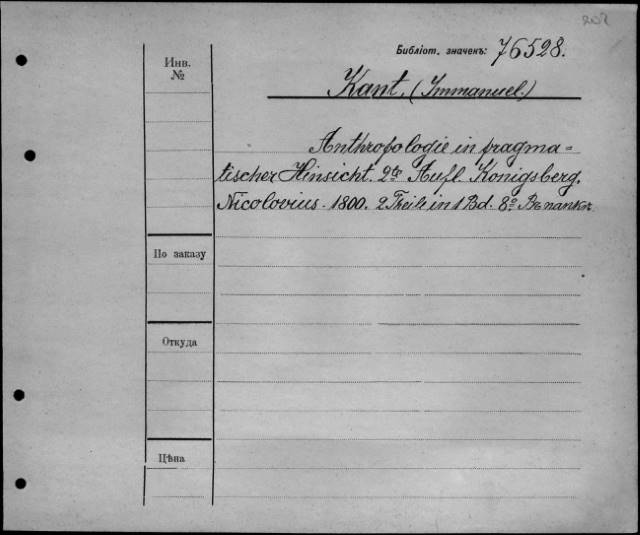 202
Библіот. значекъ: 76528.
Инв.
№
Kant. (Immanuel.)
Anthropologie in pragma=
tischer Hinsicht. 2te Aufl. Königsberg.
Nicolovius. 1800. 2 Theile in 1 Bd. 8º
По заказу
Откуда
Цѣна